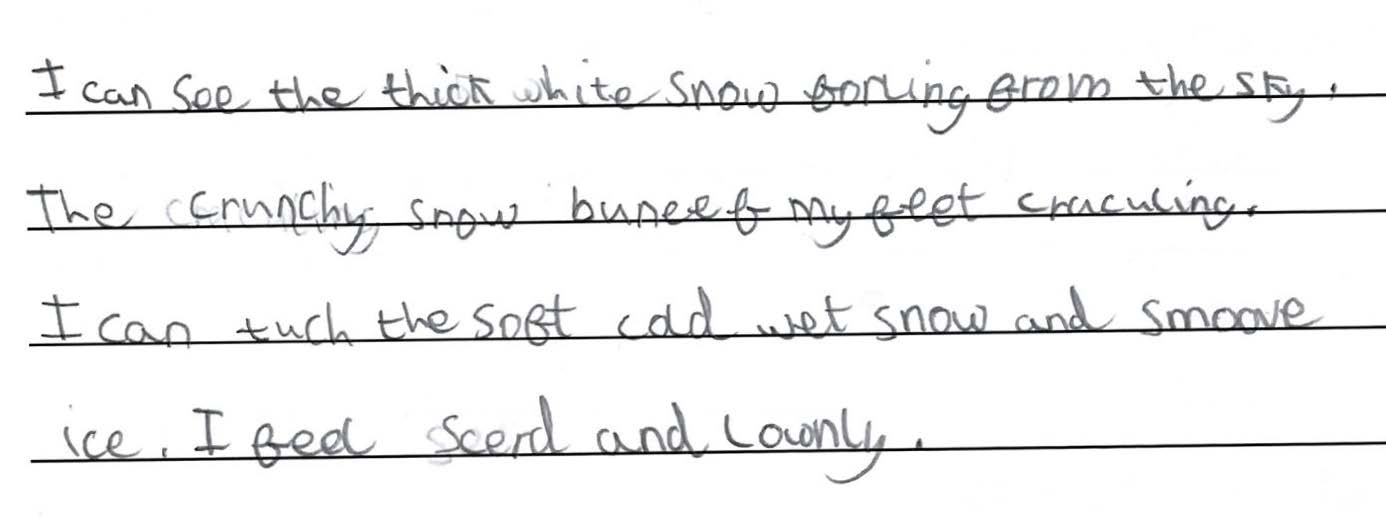 I can see the thick white snow forling from the sky.
The crunchy snow buneef my feet craculing.
I can tuch the soft cold wet snow and smoove
ice. I feel scerd and Lownly.